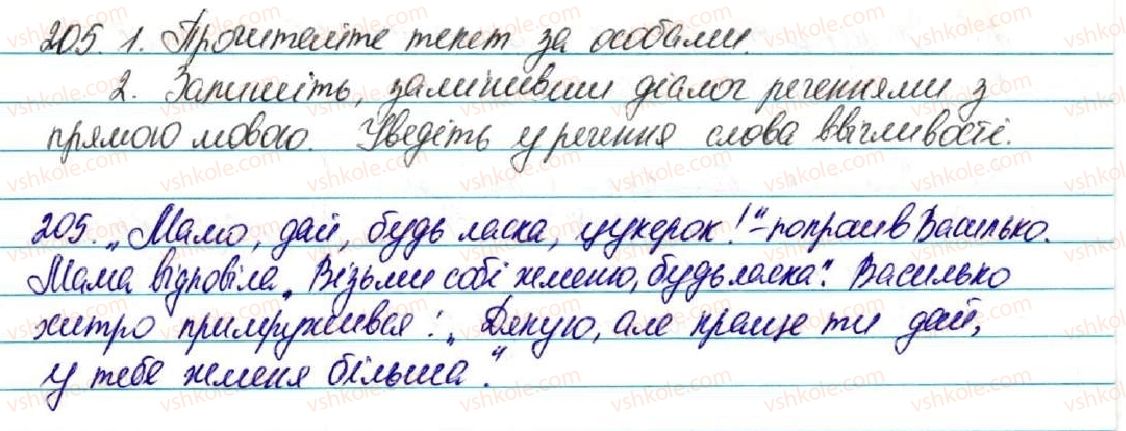 205. 1. Прочитайте текст за особами.
2. Запишіть, замінивши діалог реченнями з
прямою мовою. Уведіть у речення слова ввічливості.
205. „Мамо, дай, будь ласка, цукерок!" - попросив Василько.
Мама відповіла „Візьми собі жменю, будь ласка". Василько
хитро примружився: „Дякую, але краще ти дай,
у тебе жменя більша".